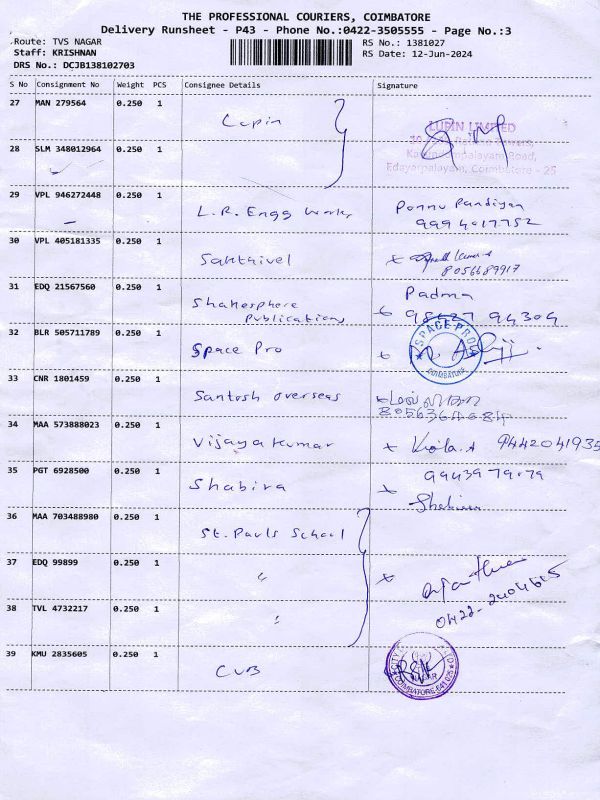 THE PROFESSIONAL COURIERS, COIMBATORE
Delivery Runsheet - P43 - Phone No.:0422-3505555 - Page No.:3
Route: TVS NAGAR
RS No.: 1381027
Staff: KRISHNAN
RS Date: 12-Jun-2024
DRS No.: DCJB138102703
S No Consignment No Weight PCS Consignee Details Signature
27 MAN 279564 0.250 1 Lupin
LUPIN LIMITED
28 SLM 348012964 0.250 1
Road,
Edayarpalayam, Coimbatore - 25
29 VPL 946272448 0.250 1 L.R. Engg Works Ponnu Pandiyan
9994017752
30 VPL 405181335 0.250 1 Sakthivel
8056689917
31 EDQ 21567560 0.250 1 Shakesphere Publications Padma
98427 94304
32 BLR 505711789 0.250 1 Space Pro
SPACE PRO
COIMBATORE
33 CNR 1801459 0.250 1 Santosh overseas
8056364684
34 MAA 573888023 0.250 1 Vijayakumar Kala.A 9442041935
35 PGT 6928500 0.250 1 Shabira 9943979079
36 MAA 703488980 0.250 1 St. Pauls School
37 EDQ 99899 0.250 1 "
38 TVL 4732217 0.250 1 "
39 KMU 2835605 0.250 1 CUB